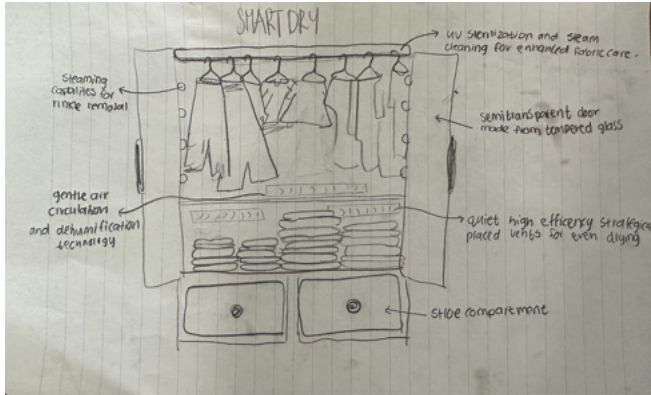 SMART DRY
UV sterilization and steam
cleaning for enhanced fabric care.
steaming
capabilites for
semitransparent door
made from tempered glass
gentle air
circulation
and dehumification
technology
quiet high efficency strategica
placed vents for even drying
shoe compartment